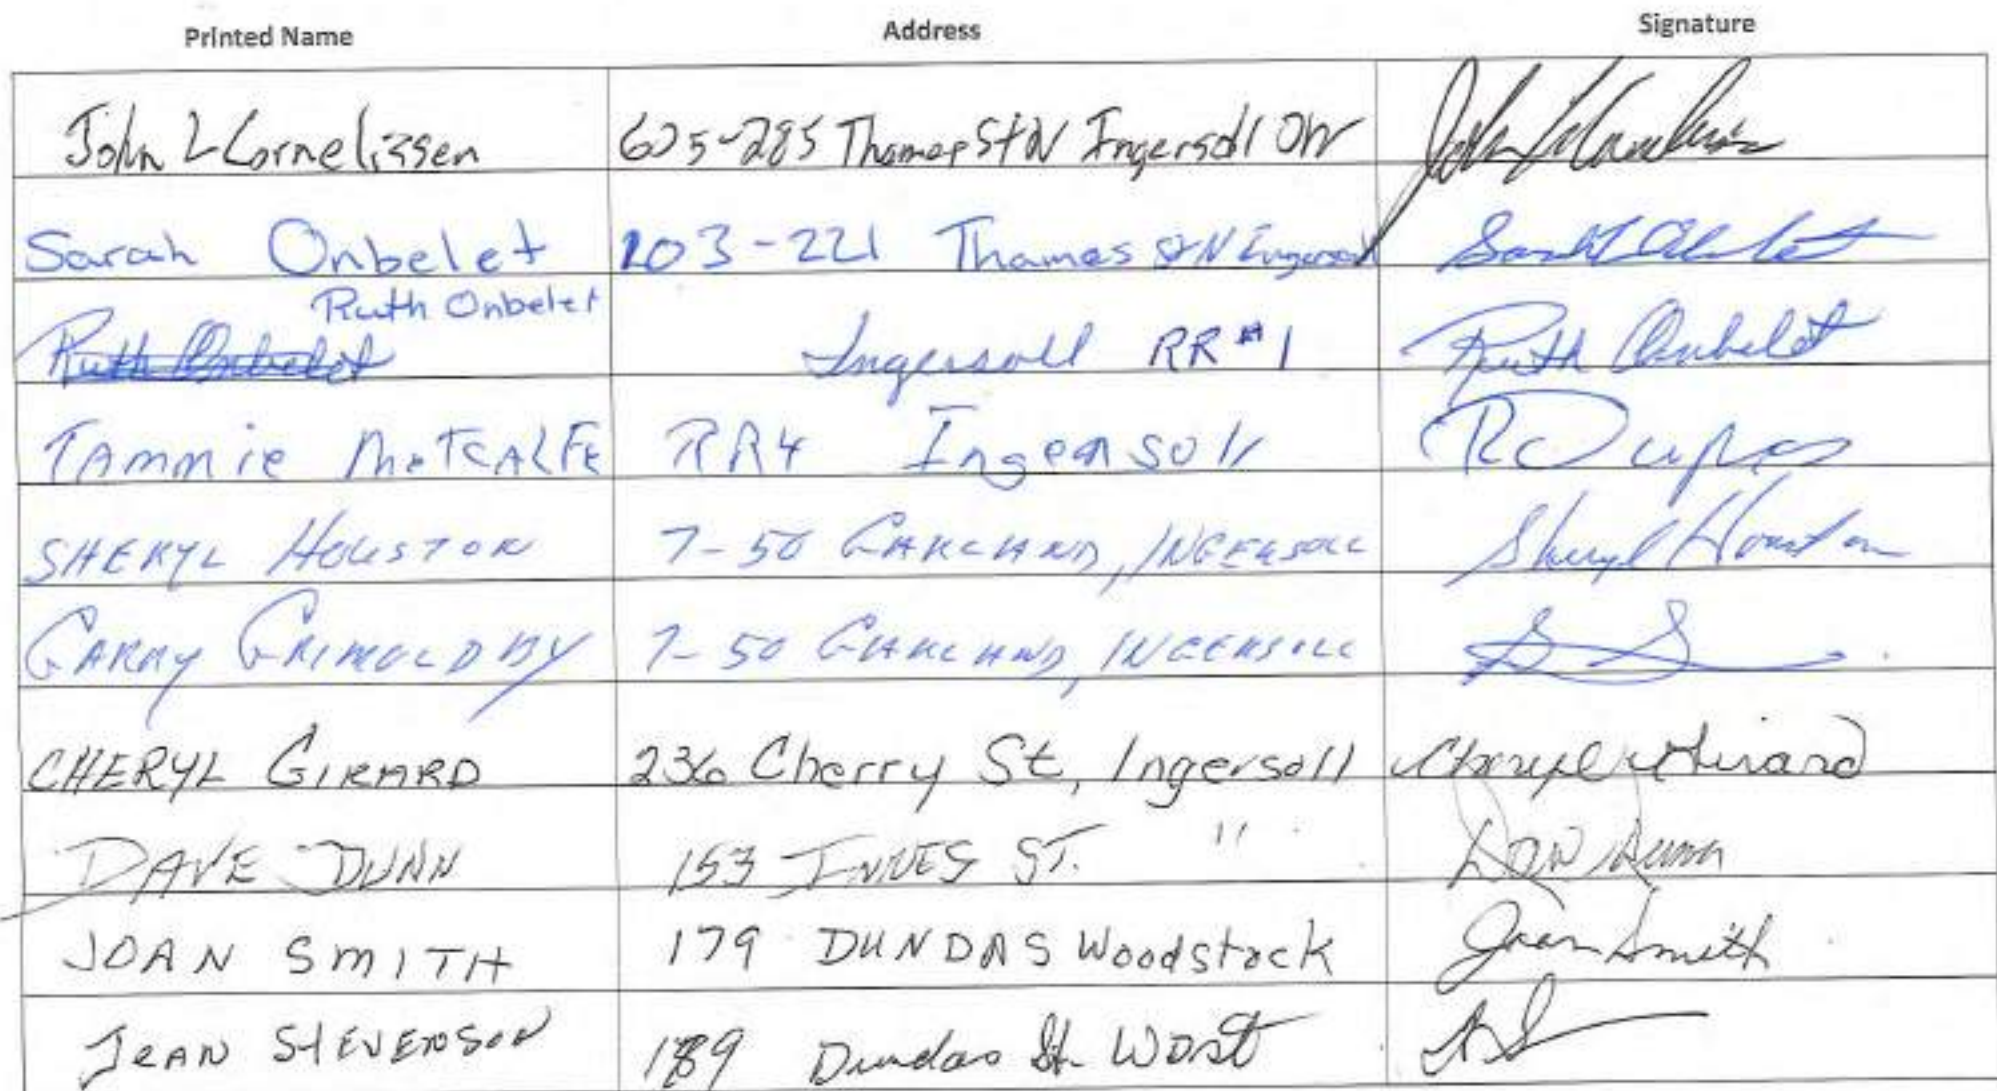 Printed Name Address Signature
John L Cornelissen 605-285 Thames St N Ingersoll ON
Sarah Onbelet 203-221 Thames St N Ingersoll Sarah Onbelet
Ruth Onbelet
Ruth Onbelet Ingersoll RR #1 Ruth Onbelet
TAmmie MeTCALFE RR4 Ingersoll
SHERYL HOUSTON 7-50 CAKLAND, INGERSOLL Sheryl Houston
GARRY GRIMOLDBY 7-50 CAKLAND, INGERSOLL
CHERYL GIRARD 236 Cherry St, Ingersoll Cheryl Girard
DAVE DUNN 153 INNES ST. " Dunn
JOAN SMITH 179 DUNDAS Woodstock Joan Smith
JEAN STEVENSON 189 Dundas St. WDST